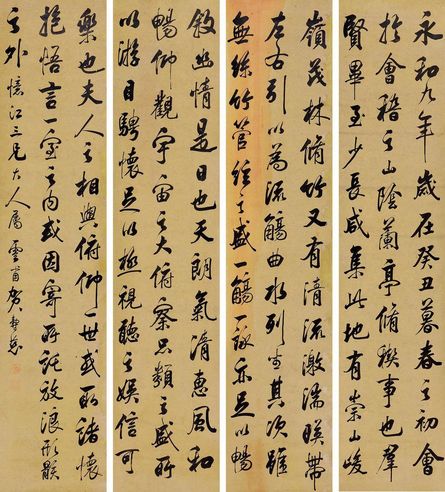 永和九年歲在癸丑暮春之初會
於會稽之山陰蘭亭脩稧事也羣
賢畢至少長咸集此地有崇山峻
嶺茂林脩竹又有清流激湍暎帶
左右引以為流觴曲水列坐其次雖
無絲竹管絃之盛一觴一詠亦足以暢
敘幽情是日也天朗氣清惠風和
暢仰觀宇宙之大俯察品類之盛所
以游目騁懷足以極視聽之娛信可
樂也夫人之相與俯仰一世或取諸懷
抱悟言一室之內或因寄所託放浪形骸
之外 憶江三兄大人屬 雲甫